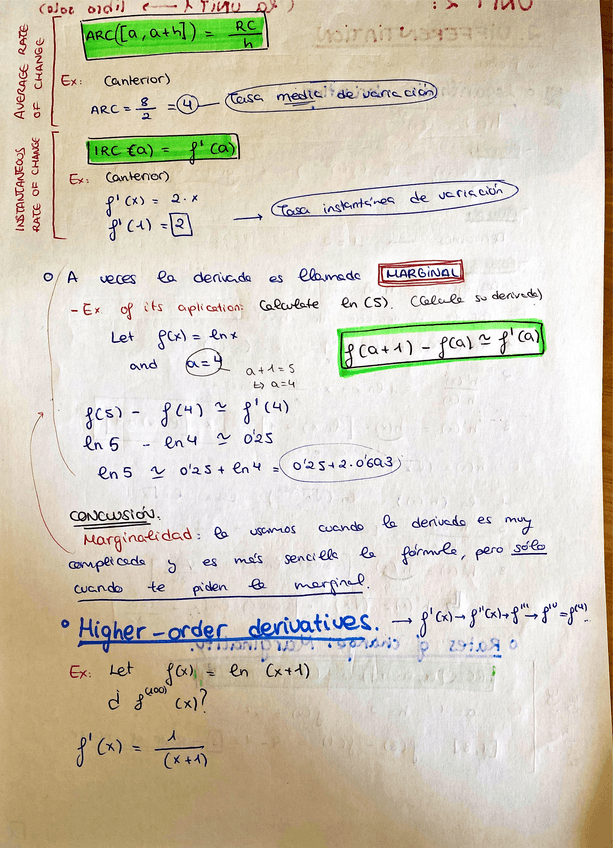 AVERAGE RATE OF CHANGE
ARC([a, a+h]) = RC/h
Ex: (anterior)
ARC = 8/2 = 4 — Tasa media de variación
INSTANTANEOUS RATE OF CHANGE
IRC (a) = f'(a)
Ex: (anterior)
f'(x) = 2·x
f'(1) = 2 → Tasa instantánea de variación
o A veces la derivada es llamada MARGINAL
- Ex of its aplication: Calculate ln(5). (Calcule su derivada)
Let f(x) = ln x
f(a+1) - f(a) ≃ f'(a)
and a=4
a+1=5
↳ a=4
f(5) - f(4) ≃ f'(4)
ln 5 - ln 4 ≃ 0'25
ln 5 ≃ 0'25 + ln 4 = 0'25+2·0'693
CONCLUSIÓN.
Marginalidad: la usamos cuando la derivada es muy
complicada y es más sencilla la fórmula, pero sólo
cuando te piden la marginal.
o Higher-order derivatives. → f'(x) → f''(x) → f''' → f^IV = f^(4).
Ex: Let f(x) = ln (x+1)
¿ f^(100) (x)?
f'(x) = 1/(x+1)